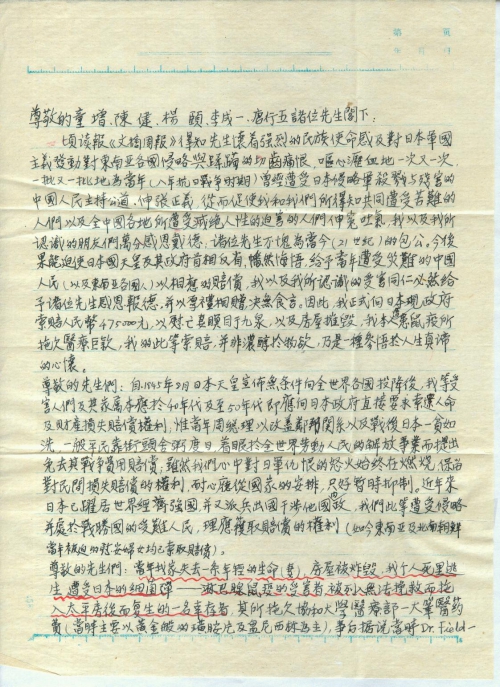 第 页
年 月 日
尊敬的童增、陳健、楊頤、李成一、唐行五諸位先生閣下:
頃讀報《文摘周報》得知先生懷着强烈的民族使命感及對日本軍國
主義發動對東南亚各國侵略與蹂躪的切齒痛恨,嘔心瀝血地一次又一次,
一批又一批地為當年(八年抗日戰爭时期)曾經遭受日本侵略軍殺戮与殘害的
中國人民主持公道,伸張正義,從而促使我和我們所得知共同遭受苦難的
人們以及全中國各地所遭受滅絕人性的迫害的人們伸寃吐氣,我以及我所
認識的朋友們萬分感恩戴德,諸位先生不愧為當今(21世紀)的包公。今後
果能迫使日本國天皇及其政府首相反省,幡然悔悟,给于當年遭受災難的中國
人民(以及東南亚各國)以相應的賠償,我以及我所認識的受害同仁必然给
予諸位先生感恩報德,并以厚禮相贈决無食言。因此,我正式向日本現政府
索賠人民幣475000元,以慰亡灵瞑目于九泉,以及房屋摧毀,我本人患鼠疫所
拖欠醫療巨款,我的此等索賠,并非濃醉於物欲,乃是一種參悟於人生真谛
的心懷。
尊敬的先生們:自1945年8月日本天皇宣佈無条件向全世界各國投降後,我等受
害人們及其家属本應於40年代及至50年代即應向日本政府直接要求索還人命
及財產損失賠償權利,惟當年周總理以改善鄰邦關系以及戰後日本一貧如
洗,一般平民靠街頭舍粥度日着眼於全世界勞動人民的解放事業而提出
免去其戰爭費用賠償,雖然我們心中對日軍仇恨的怒火始终在燃燒,保留
對民間損失賠償的權利,耐心應從國家的安排,只好暫時抑制。近年來
日本已躍居世界經濟強國并又派兵出國干涉他國内政,我們此等遭受侵略
并處於戰勝國的受難人民,理應獲取賠償的權利(如今東南亚及北南朝鮮
當年被迫的慰安婦女均已索取賠償)。
尊敬的先生們:當年我家失去一条年轻的生命(),房屋被炸毀,我个人死里逃
生遭受日本的细菌彈——淋巴腺鼠疫的受害者被列入無法搶救而拖
入太平房後而复生的一名幸存者,其所拖欠協和大學醫療部一大筆醫药
費(當時主要以黄金般的磺胺片及盘尼西林為主),事后据说當時Dr. Field-